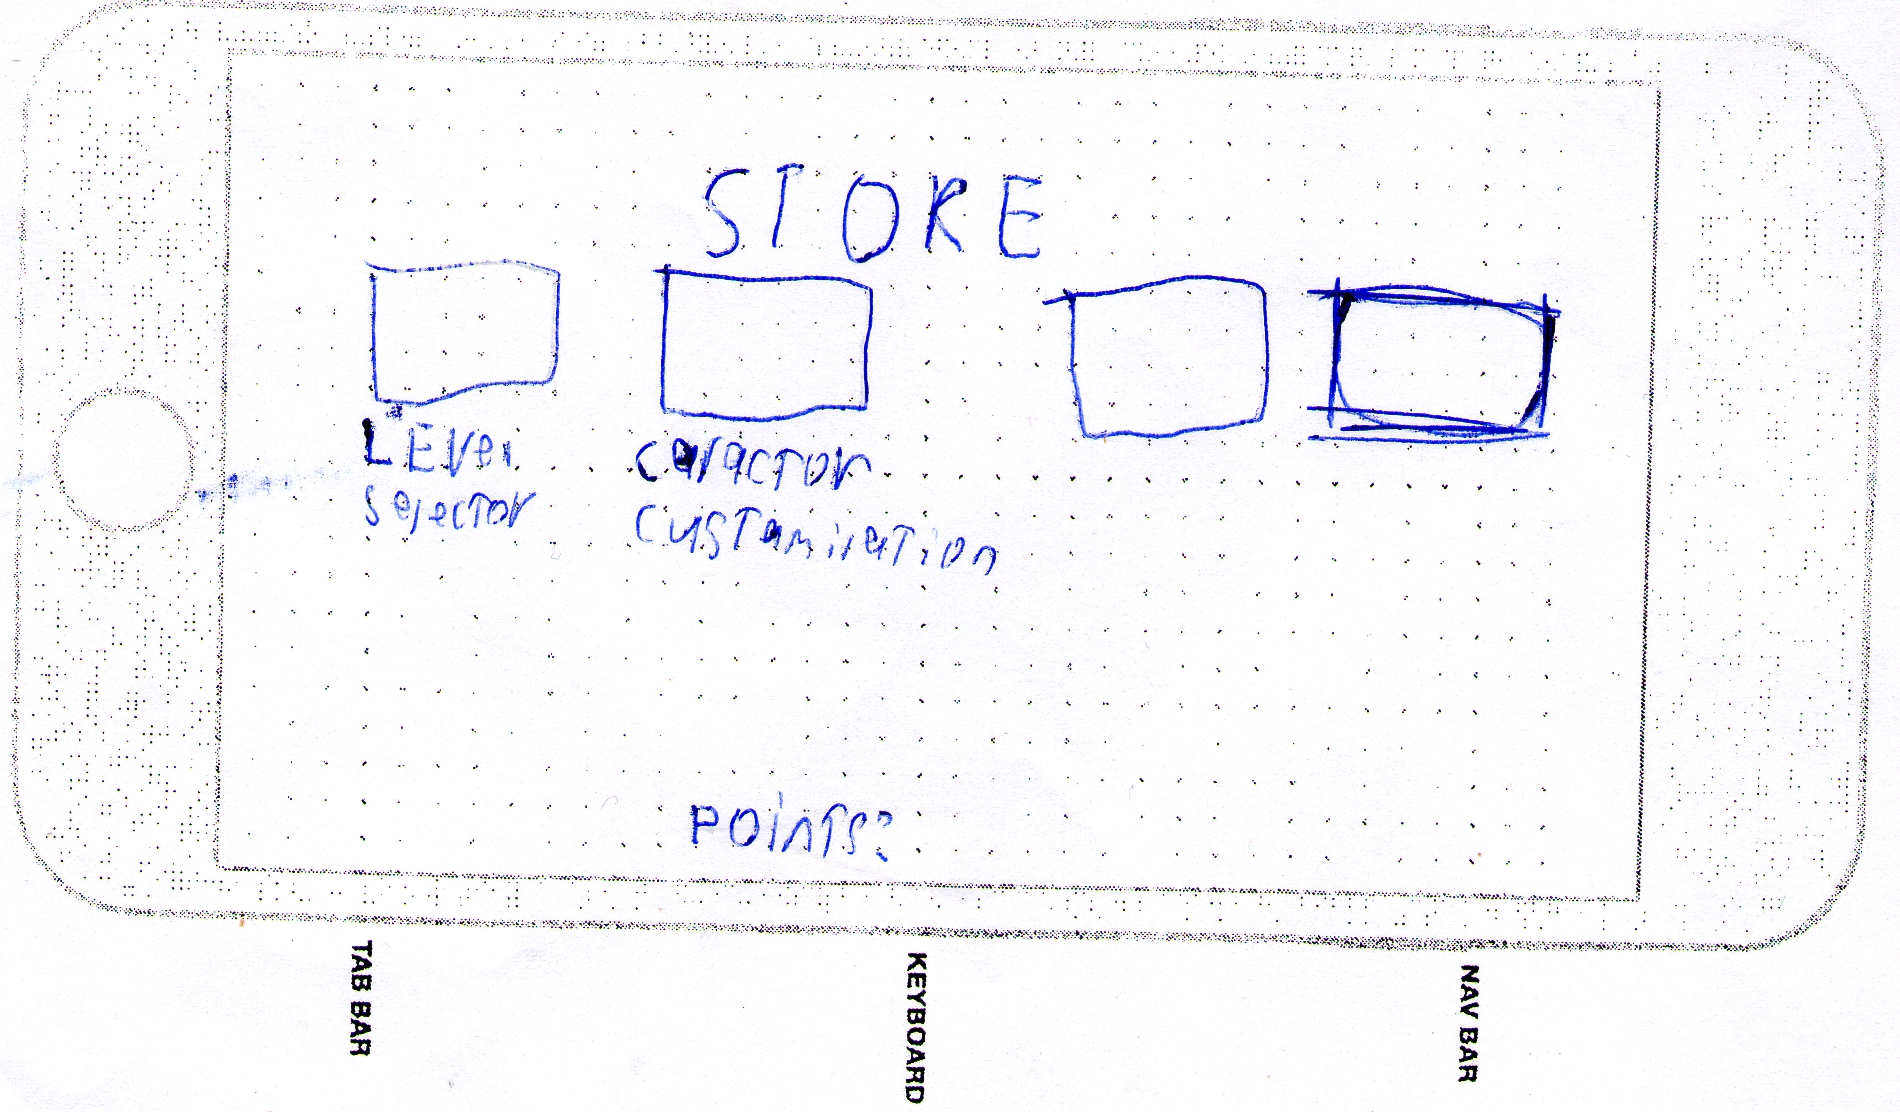 STORE
LEvel
selector
caractor
custamization
POINTS:
TAB BAR
KEYBOARD
NAV BAR